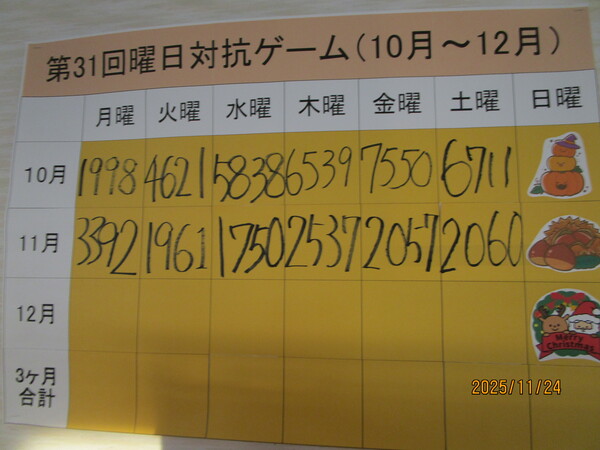 第31回曜日対抗ゲーム(10月～12月)
月曜 火曜 水曜 木曜 金曜 土曜 日曜
10月 1998 4621 5838 6539 7550 6711
11月 3392 1961 1750 2537 2057 2060
12月
Merry
Christmas
3ケ月
合計
2025/11/24